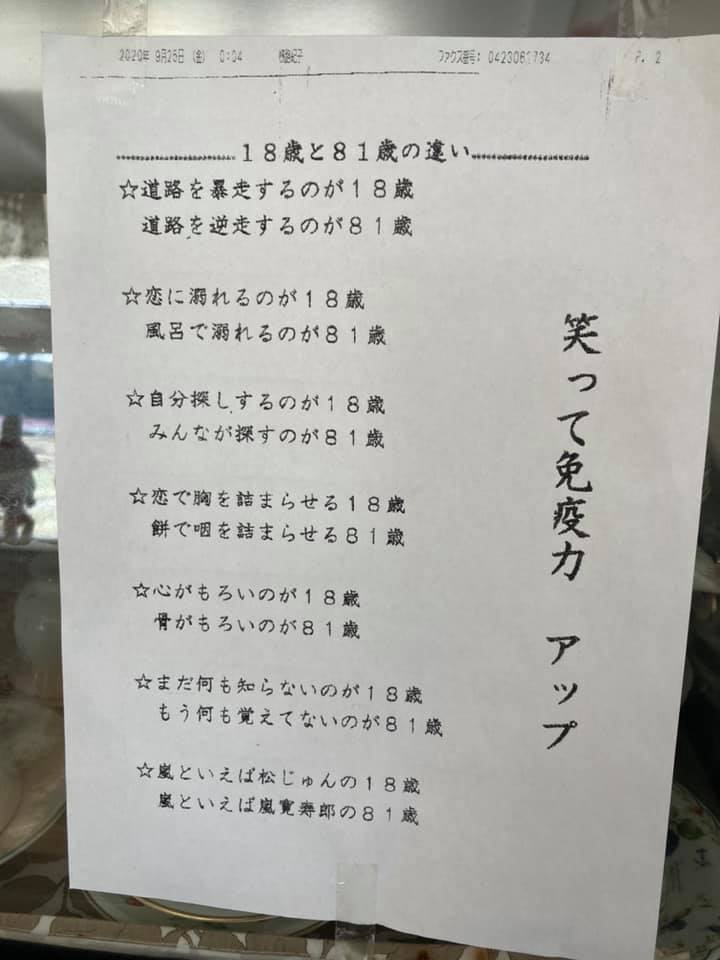 2020年 9月25日 (金) 0:04 ファクス番号: 0423061734 P. 2
18歳と81歳の違い
☆道路を暴走するのが18歳
道路を逆走するのが81歳
☆恋に溺れるのが18歳
風呂で溺れるのが81歳
☆自分探しするのが18歳
みんなが探すのが81歳
☆恋で胸を詰まらせる18歳
餅で咽を詰まらせる81歳
☆心がもろいのが18歳
骨がもろいのが81歳
☆まだ何も知らないのが18歳
もう何も覚えてないのが81歳
☆嵐といえば松じゅんの18歳
嵐といえば嵐寛寿郎の81歳
笑って免疫力 アップ